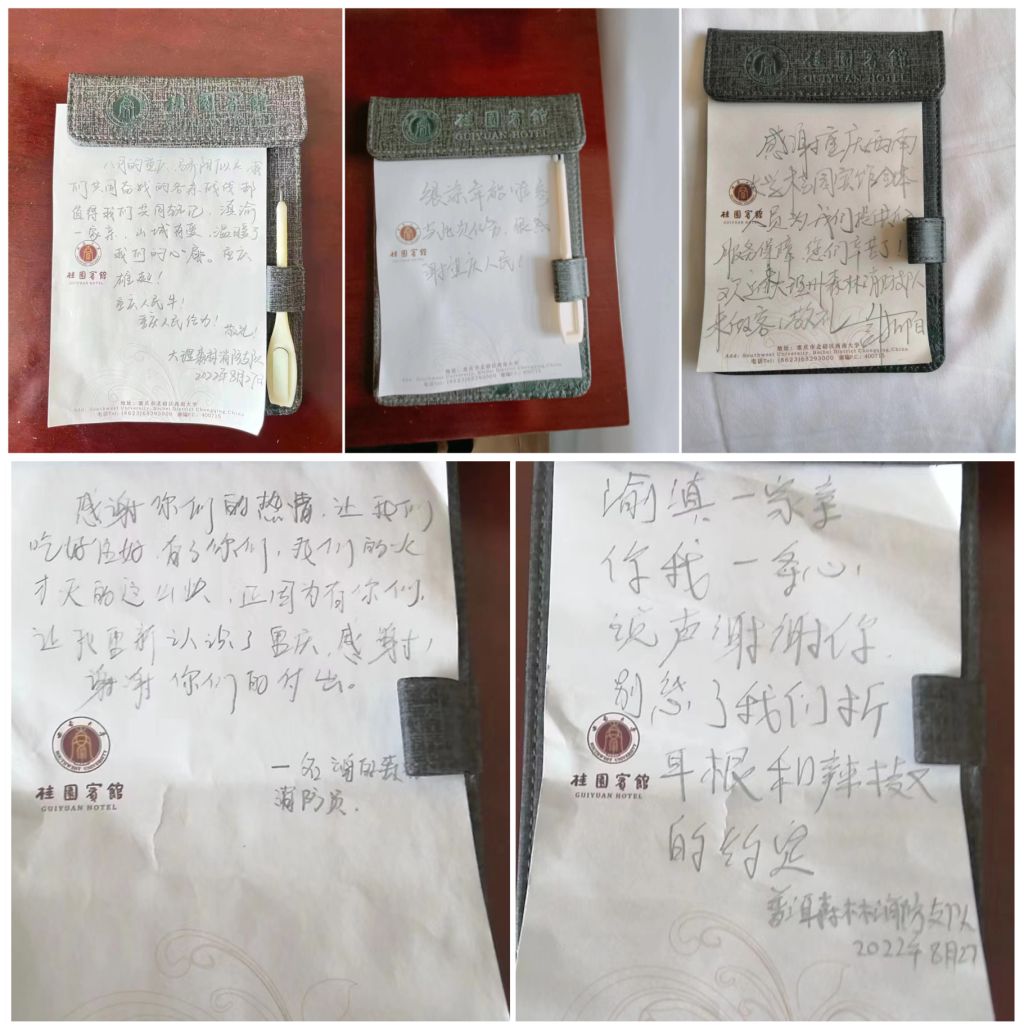 桂園賓館
八月的重庆，骄阳似火，我
们共同奋战的各条战线都
值得我们共同铭记，滇渝
一家亲，山城有爱，温暖了
我们的心窝。重庆
雄起！
重庆人民牛！
重庆人民给力！
敬礼！
大理森林消防支队
2022年8月27日
桂園賓館
GUIYUAN HOTEL
地址：重庆市北碚区西南大学
Add: Southwest University, Beibei District Chongqing,China
电话Tel: (8623)68293000 邮编P.C.: 400715
桂園賓館
GUIYUAN HOTEL
很荣幸能准参
与此次任务，很感
谢重庆人民！
桂園賓館
GUIYUAN HOTEL
地址：重庆市北碚区西南大学
Add: Southwest University, Beibei District Chongqing,China
电话Tel: (8623)68293000 邮编P.C.: 400715
桂園賓館
GUIYUAN HOTEL
感谢重庆西南
大学桂园宾馆全体
人员为我们提供的
服务保障，您们辛苦了！
欢迎来 森林消防支队
来做客，敬礼
桂園賓館
GUIYUAN HOTEL
地址：重庆市北碚区西南大学
Add: Southwest University, Beibei District Chongqing,China
电话Tel: (8623)68293000 邮编P.C.: 400715
感谢你们的热情，让我们
吃好住好，有了你们，我们的火
才灭的这么快，正因为有你们，
让我重新认识了重庆，感谢，
谢谢你们的付出。
一名
消防员.
西南大学
SOUTHWEST UNIVERSITY
桂園賓館
GUIYUAN HOTEL
渝滇一家亲
你我一条心，
说声谢谢你，
别忘了我们折
耳根和辣椒
的约定
普洱森林消防支队
2022年8月27
西南大学
SOUTHWEST UNIVERSITY
桂園賓館
GUIYUAN HOTEL